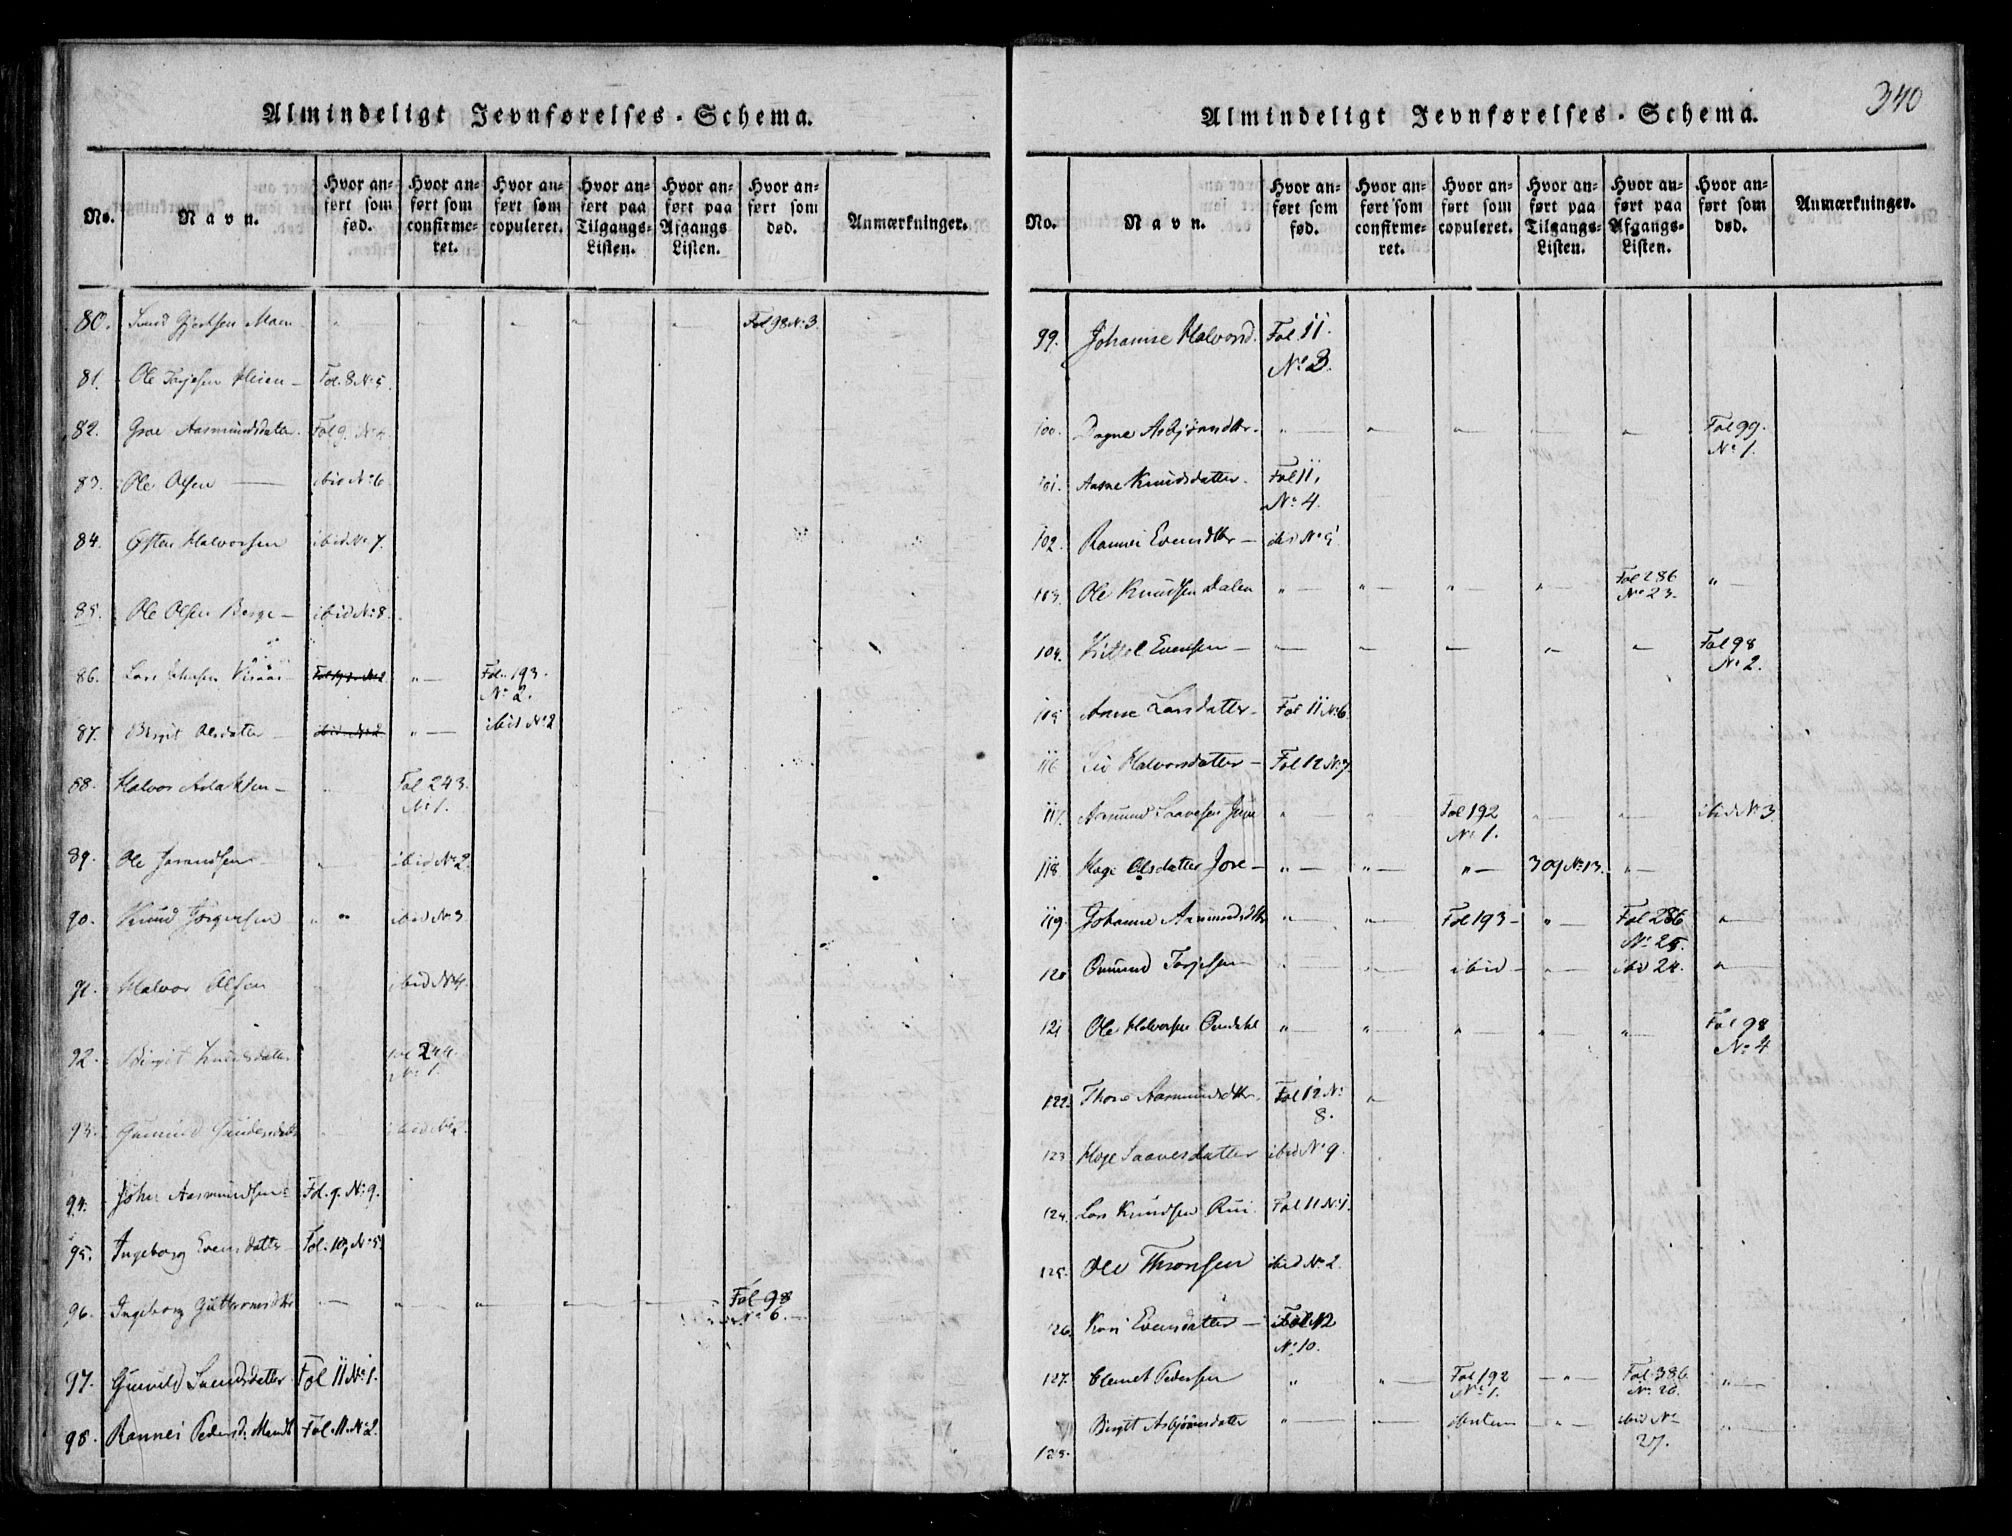 340
Almindeligt Jevnførelses-Schema.
No. Navn. Hvor anført som fød. Hvor anført som confirmeret. Hvor anført som copuleret. Hvor anført paa Tilgangs-Listen. Hvor anført paa Afgangs Listen. Hvor anført som død. Anmærkninger.
80. Fol 98 No 3.
81. Ole Torjesen - Fol. 8 No 5.
82. Groe Aasmundsdatter. Fol 9. No 4.
83. Ole Olsen — ibid No 6
84. Østen Halvorsen ibid No 7.
85. Ole Olsen Berge - ibid No 8.
86. Lars " — Fol. 193. No 2.
87. Birgit Olsdatter - ibid No 2 " — ibid No 2
88. Halvor Aslaksen - Fol 243. No 1.
89. Ole ibid No 2.
90. Knud Jørgensen " " ibid No 3
91. Halvor Olsen ibid No 4.
92. Birgit Knudsdatter Fol 244. No 1.
93. ibid No 2.
94. John Aasmundsen Fol. 9. No 9.
95. Ingeborg Evensdatter Fol. 10, No 5.
96. Ingeborg Guttormsdtr — " — " — " — Fol 98 No 6. —
97. Gunild Svendsdatter Fol 11 No 1.
98. Rannei Pedersd. Fol. 11. No 2.
Almindeligt Jevnførelses-Schema.
No. Navn. Hvor anført som fød. Hvor anført som confirmeret. Hvor anført som copuleret. Hvor anført paa Tilgangs-Listen. Hvor anført paa Afgangs-Listen. Hvor anført som død. Anmærkninger.
99. Johanne Halvorsd. Fol. 11. No 3.
100. Dagne Asbjørnsdtr. " — " — " — " — " — Fol 99. No 1.
101. Aasne Knudsdatter. Fol 11, No 4.
102. Rannei Evensdtr —
103. Ole Knudsen Dalen " — " — " — " — Fol 286 No 23. " —
104. Kittel Evensen — " — " — " — " — " — Fol 98 No 2.
105 Anne Larsdatter - Fol 11 No 6.
116 Liv Halvorsdatter - Fol 12 No 7.
117. Aasmund Saavesen " — " — Fol 192 No 1. " — " — ibid No 3.
118. Hæge Olsdatter Jore - " — " — " — 309 No 13. " —
119. Johanne Aasmundsdtr " — " — Fol 193 - " — Fol 286 No 25. " —
120 Omund Torjesen " — " — ibid - " — ibid 24. " —
121 Ole Halvorsen Omdahl " — " — " — " — " — Fol 98 No 4
122. Thore Aasmundsdtr. Fol 12 No 8. "
123 Hæge Saavesdatter ibid No 9.
124. Lars Knudsen Rui Fol 11 No 1.
125. Ole Thronsen ibid No 2.
126. Kari Evensdatter - Fol 12 No. 10.
127. Clemet Pedersen " " — Fol 192 No 1. - " — Fol. 386 No. 26. " —
128. Birgit Asbjørnsdatter " — " — " — ibid No 27. " —